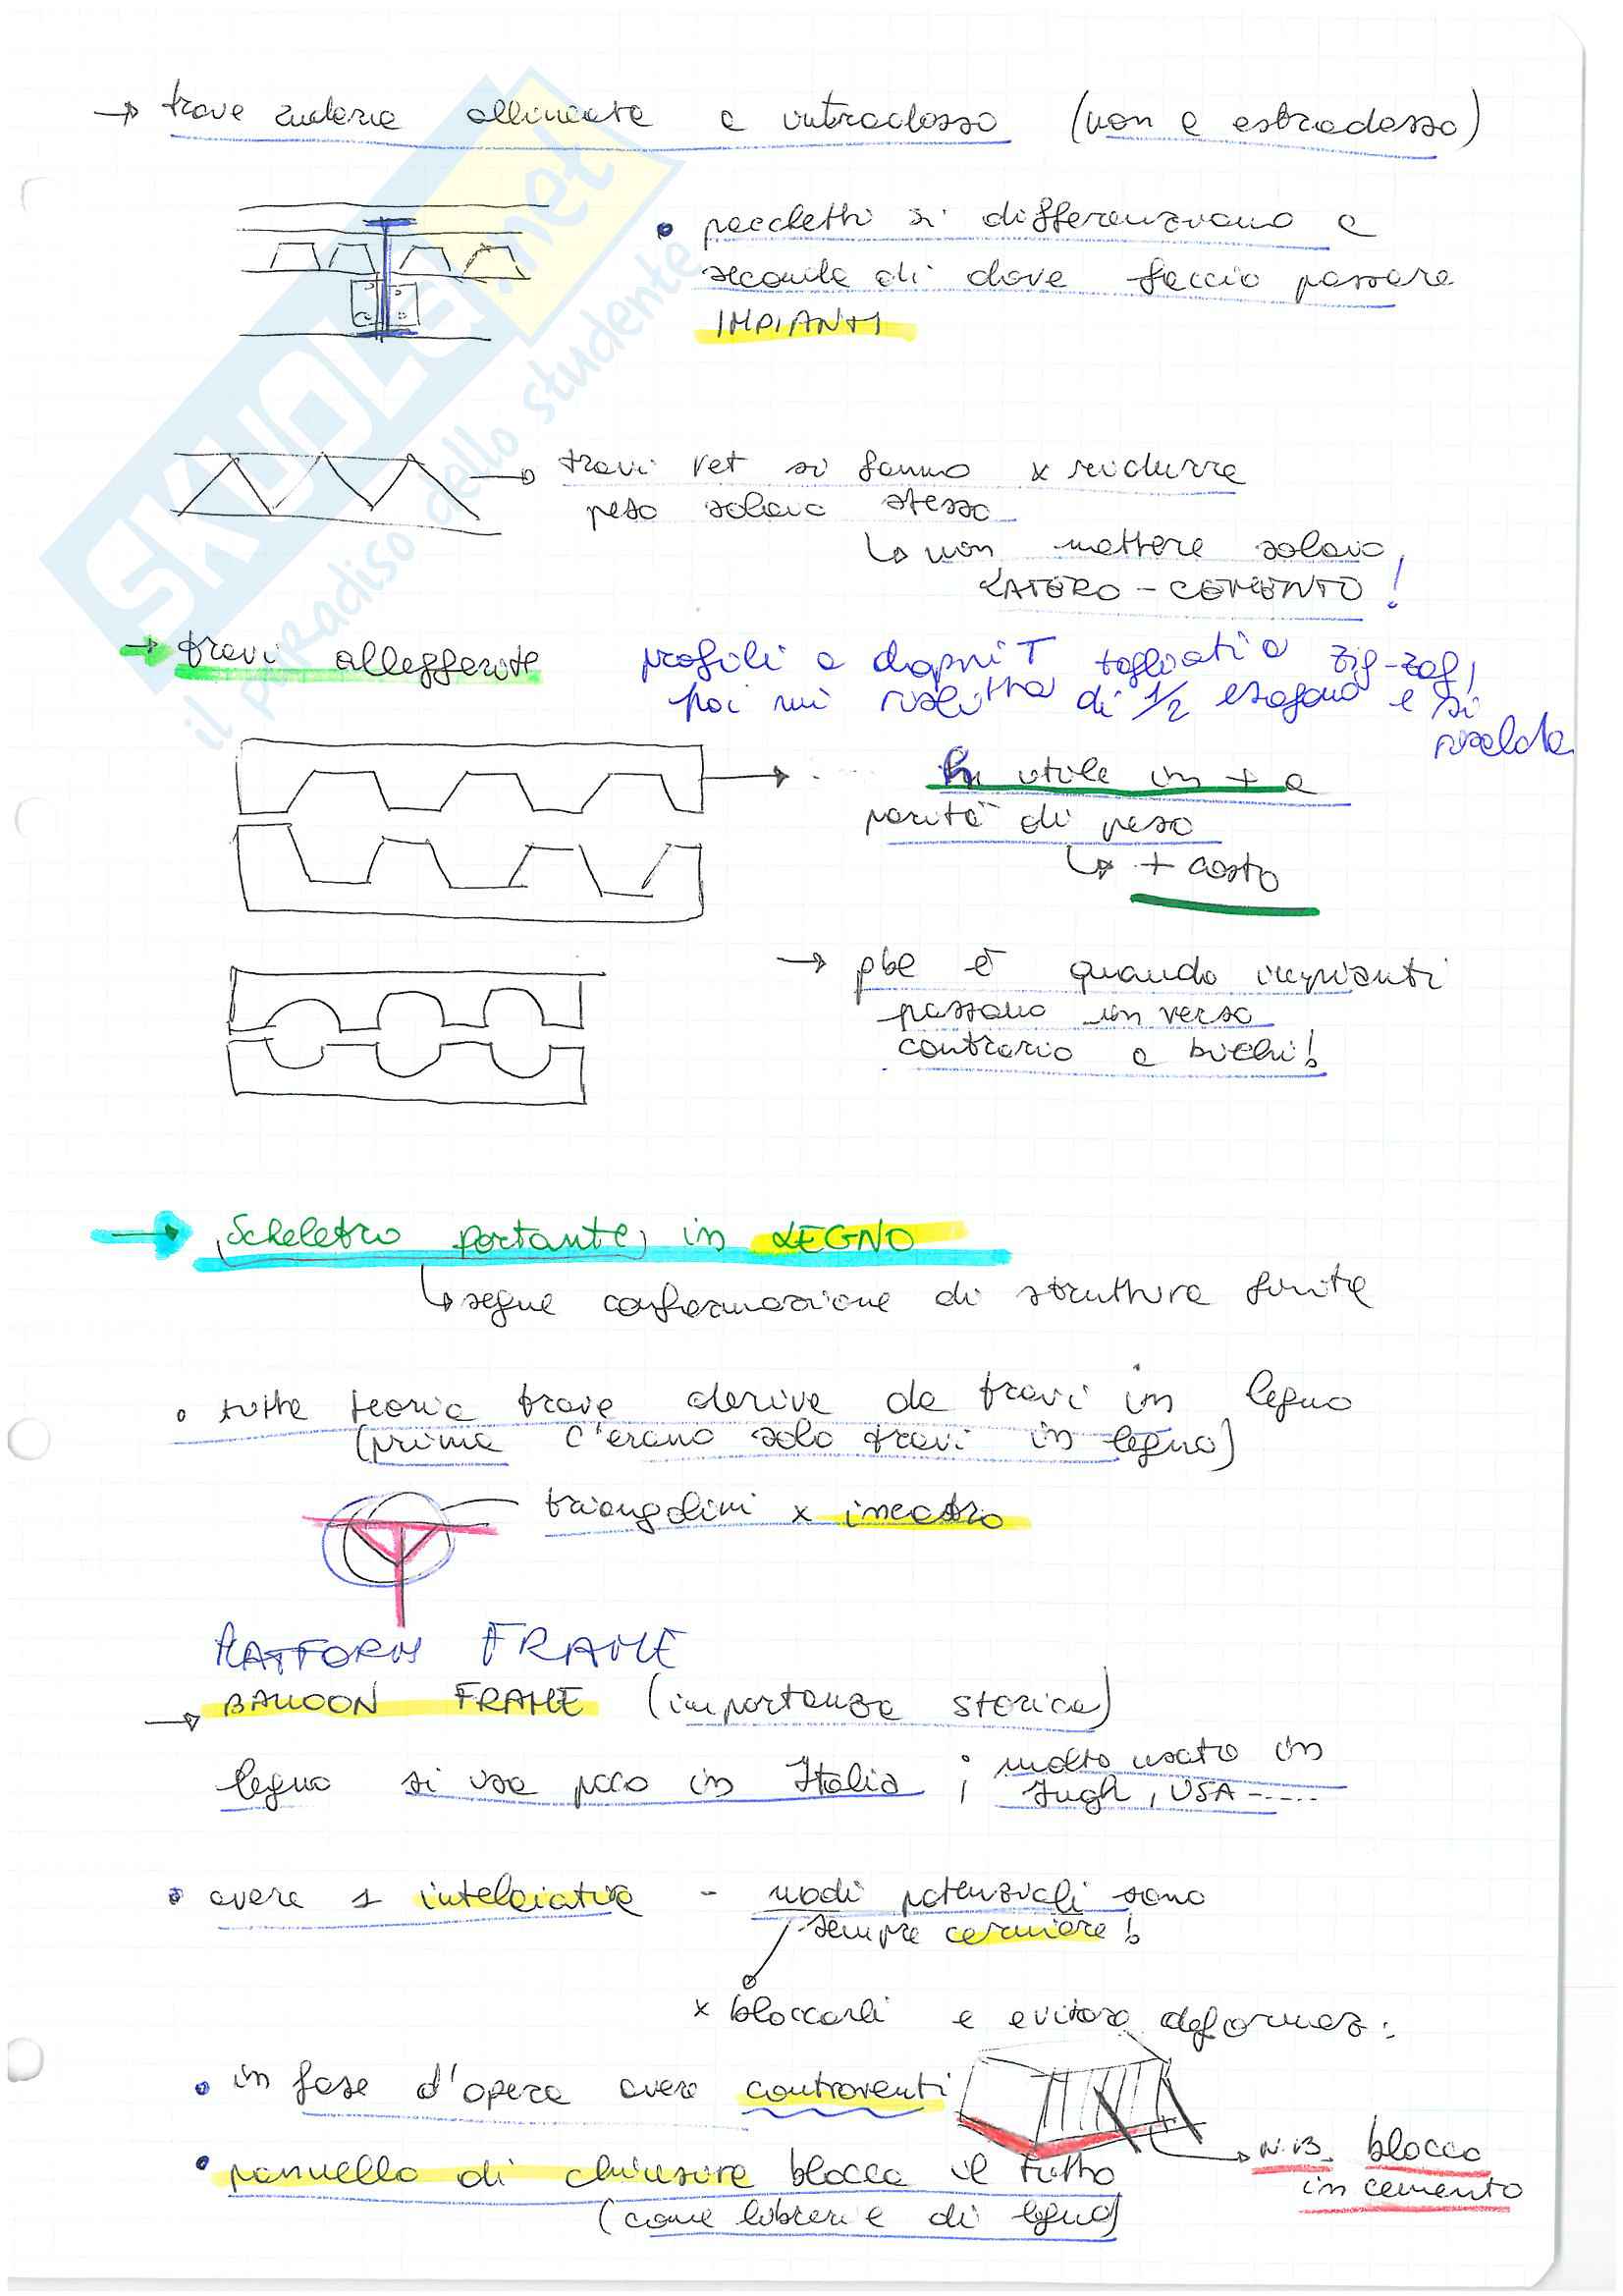 → trave anderà allineata a intradosso (non a estradosso)
• pacchetti si differenziano a
seconda di dove faccio passare
IMPIANTI
SKUOLA.net
il paradiso dello studente
travi ret si fanno x ridurre
peso solaio stesso
↳ non mettere solaio
LATERO-CEMENTO!
→ travi alleggerite
profili a doppi T tagliati a zig-zag,
poi mi risulta di 1/2 esagono e si
risalda
h utile in + a
parità di peso
↳ + costo
→ pbl è quando impianti
passano in verso
contrario a buchi!
→ Scheletro portante in LEGNO
↳ segue conformazione di struttura finita
• tutta teoria trave deriva da travi in legno
(prima c'erano solo travi in legno)
triangolini x incastro
PLATFORM FRAME
→ BALLOON FRAME (importanza storica)
legno si usa poco in Italia ; molto usato in
Ingh, USA -....
• avere 1 intelaiatura - nodi potenziali sono
sempre cerniere!
x bloccarli e evitare deformaz:
• in fase d'opera avere controventi
N.B. blocco
in cemento
• pannello di chiusura blocca il tutto
(come librerie di legno)